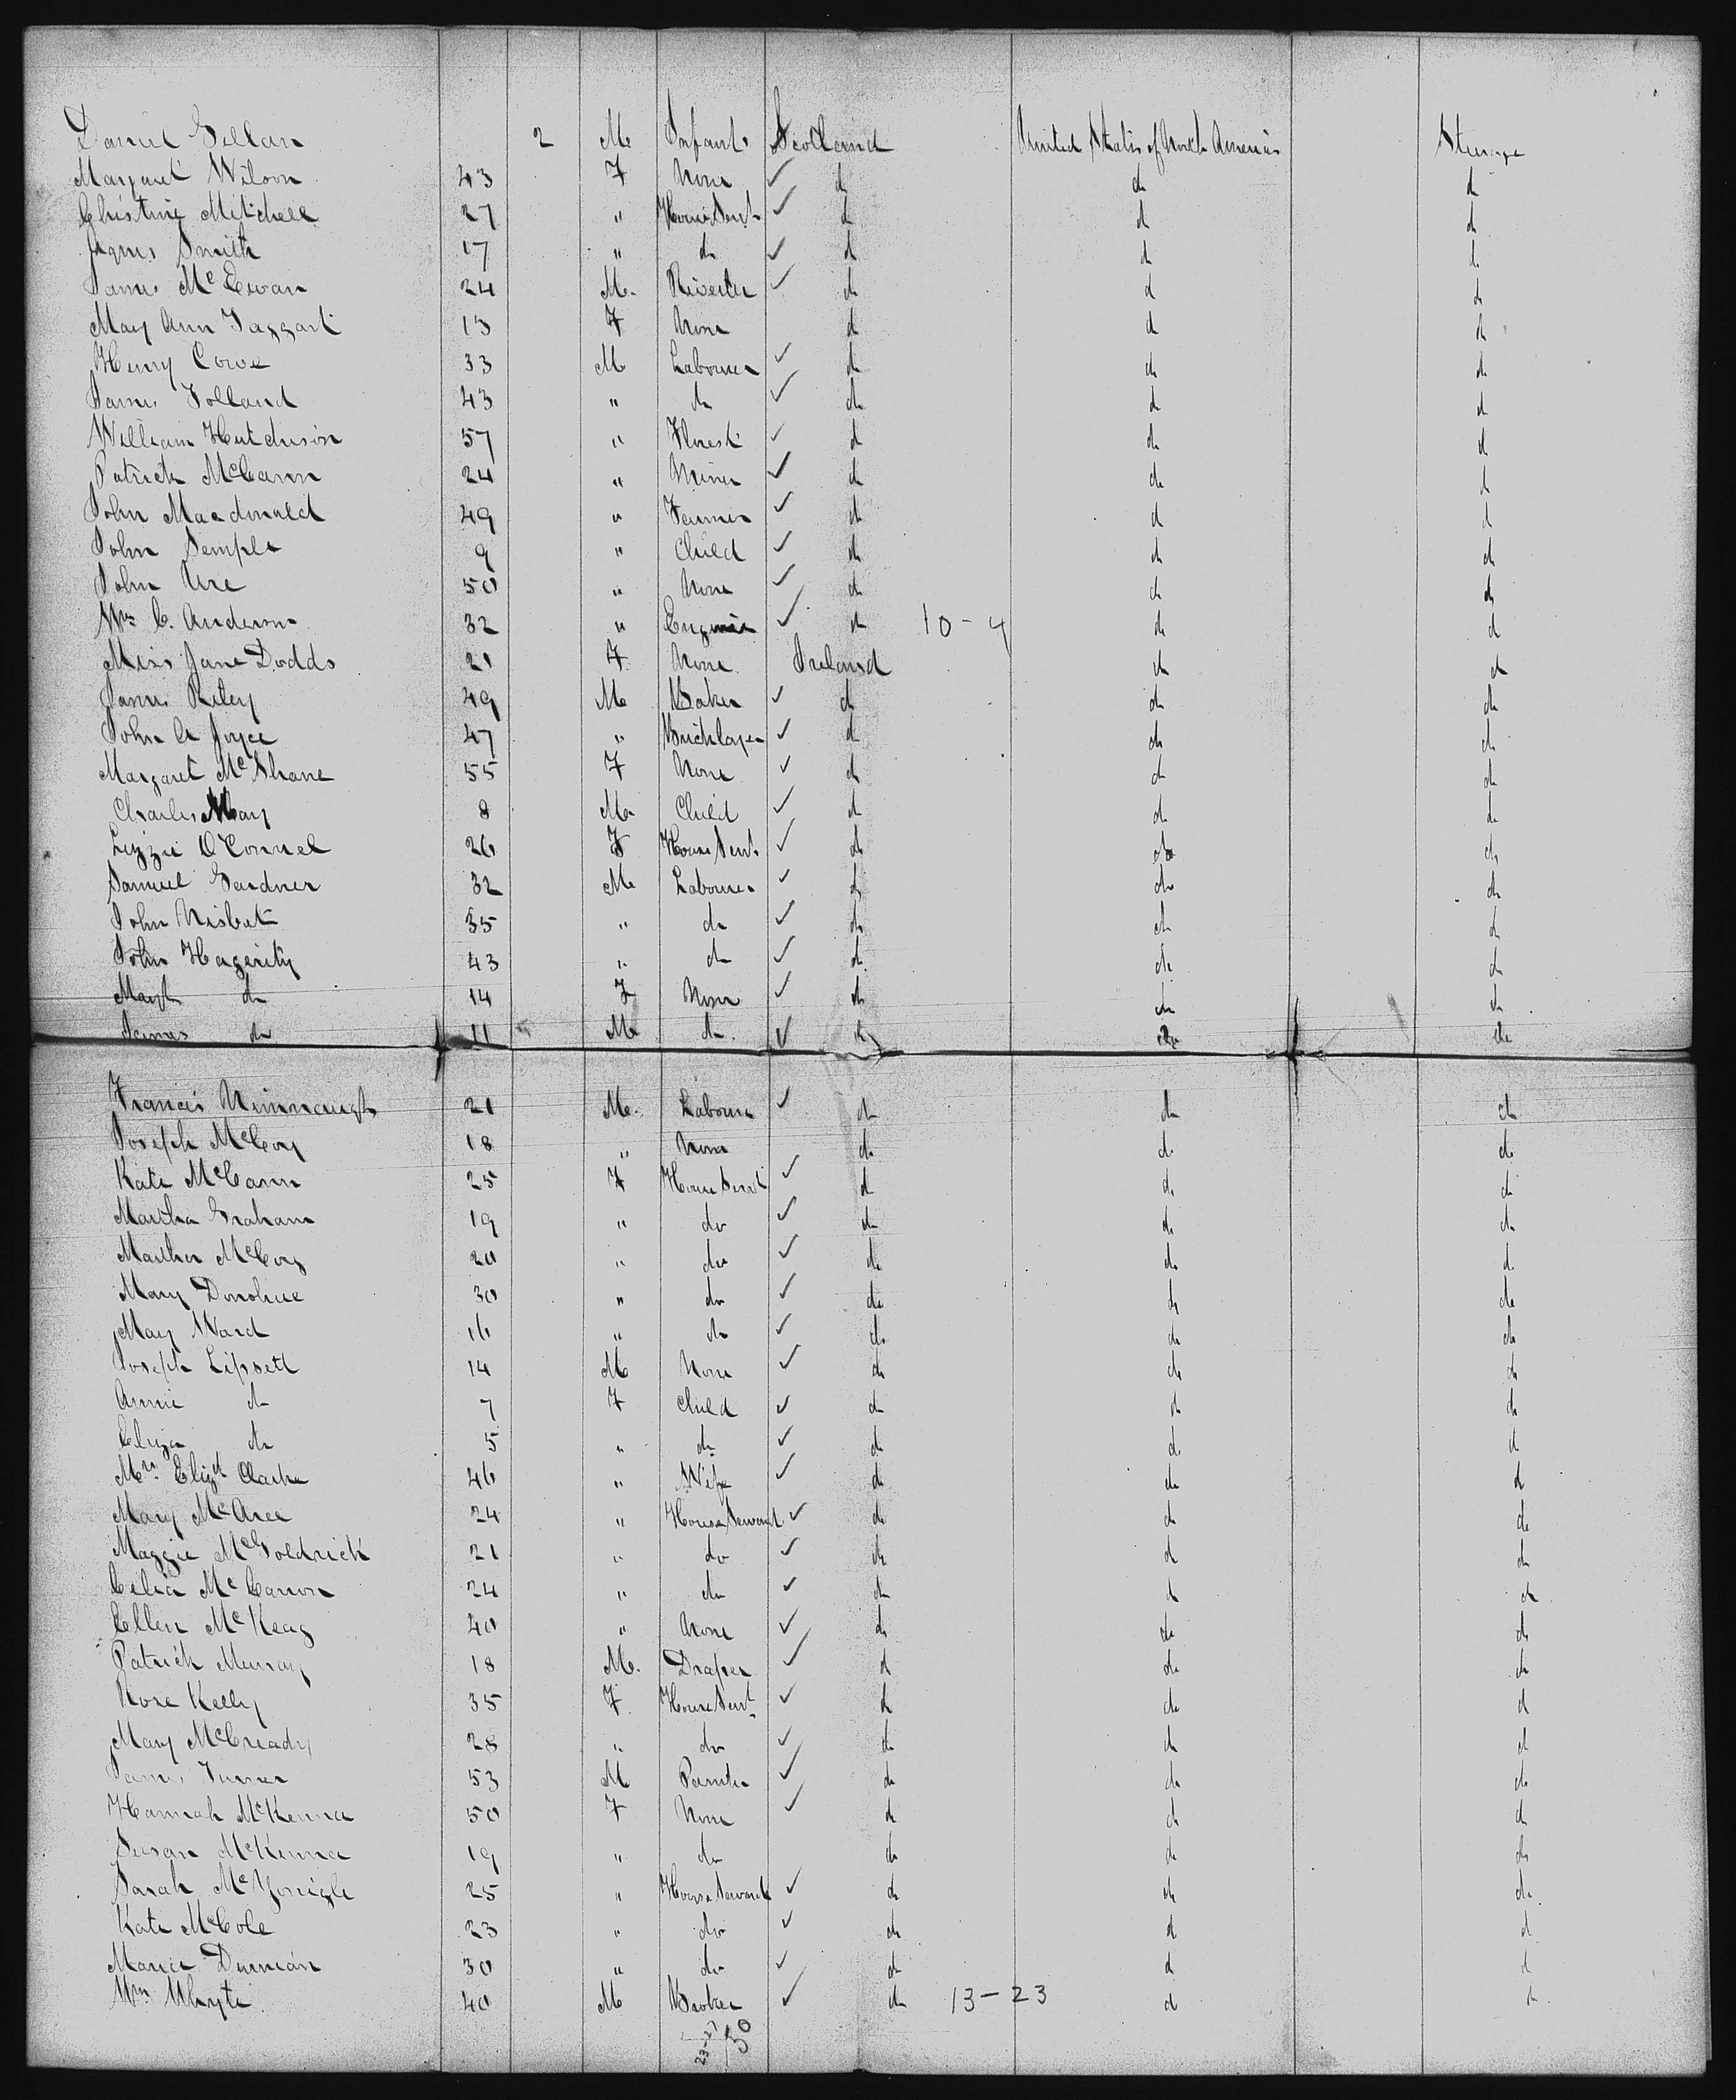 Daniel Gellan 2 M. Infant Scotland United States of North America Steerage
Margaret Wilson 43 F None ✓ do do do
Christine Mitchell 27 " House Servt ✓ do do do
Agnes Smith 17 " do ✓ do do do
James McEwan 24 M. Riveter ✓ do do do
Mary Ann Taggart 13 F None do do do
Henry Cowe 33 M Labourer ✓ do do do
James Tolland 43 " do ✓ do do do
William Hutchison 57 " Florist ✓ do do do
Patrick McCann 24 " Miner ✓ do do do
John Macdonald 49 " Farmer ✓ do do do
John Semple 9 " Child ✓ do do do
John Ure 50 " None ✓ do do do
Wm C. Anderson 32 " ✓ do 10-4 do do
Miss Jane Dodds 21 F None Ireland do do
James Riley 49 M Baker ✓ do do do
John A Joyce 47 " Bricklayer ✓ do do do
Margaret McShane 55 F None ✓ do do do
Charles 8 M Child ✓ do do do
Lizzie O'Connel 26 F House Servt ✓ do do do
Samuel Gardner 32 M Labourer ✓ do do do
John Nisbet 35 " do ✓ do do do
John Hagerity 43 " do ✓ do do do
Margt do 14 F None ✓ do do do
James do 11 M do ✓ do do do
Francis Minnaugh 21 M. Labourer ✓ do do do
Joseph McCoy 18 " None do do do
Kate McCann 25 F House Servt ✓ do do do
Martha Graham 19 " do ✓ do do do
Martha McCoy 20 " do ✓ do do do
Mary Donohue 30 " do ✓ do do do
Mary Ward 16 " do ✓ do do do
Joseph Lipsett 14 M None ✓ do do do
Annie do 7 F Child ✓ do do do
Eliza do 5 " do ✓ do do do
Mrs Elizth Clarke 46 " Wife ✓ do do do
Mary McAree 24 " House Servant ✓ do do do
Maggie McGoldrick 21 " do ✓ do do do
Celia McCarron 24 " do ✓ do do do
Ellen McKeag 40 " None ✓ do do do
Patrick Murray 18 M. Draper ✓ do do do
Rose Kelly 35 F. House Servt ✓ do do do
Mary McCready 28 " do ✓ do do do
James Turner 53 M Painter ✓ do do do
Hannah McKenna 50 F None ✓ do do do
Susan McKenna 19 " do do do do
Sarah McGonigle 25 " House Servant ✓ do do do
Kate McCole 23 " do ✓ do do do
Maria Durnian 30 " do ✓ do do do
Wm Whyte 40 M Broker ✓ do 13-23 do do
23-27
50